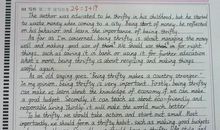 24-1+17
The author was educated to be thrifty in his childhood, but he started
to waste money when coming to a city. Being short of money, he reflected
on his behavior and learn the importance of being thrifty.
As far as I'm concerned, being thrifty is about managing the money
well and making good use of them. We should use them in the right
things, such as saving it in bank or using it for further education
what's more, being thrifty is about recycling and making things
useful again.
As an old saying goes, "Being thrifty makes a country stronger".
In my opinion, being thrifty is very important. Firstly, being thrifty
can make us learn about the knowledge of economy if we can make
a good budget. Secondly, it can teach us about eco-friendly and
reasonable living. Thirdly, it will make the world much better.
To be thrifty, we should take action and start out now. First,
we should form a thrifty habit, such as making good budgets